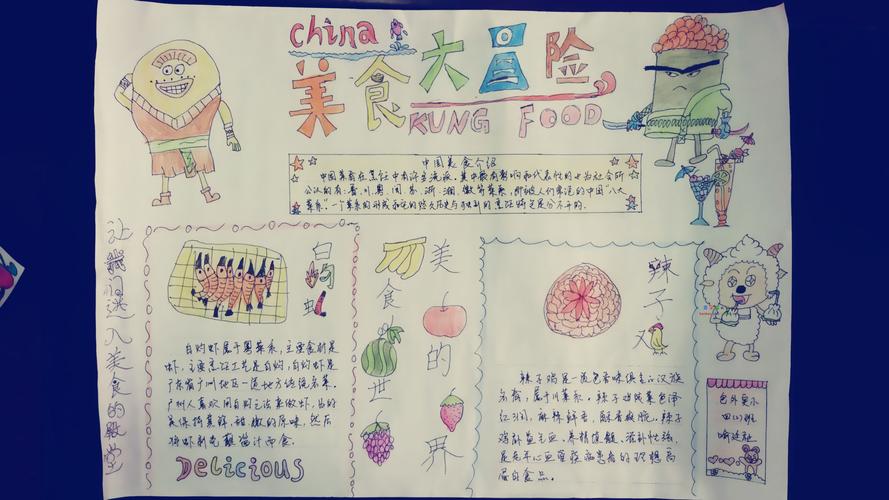 china
美食大冒险
KUNG FOOD
中国美食介绍
中国菜肴在烹饪中有许多流派。其中最有影响和代表性的也为社会所
公认的有:鲁、川、粤、闽、苏、浙、湘、徽等菜系,即被人们常说的中国“八大
菜系”。一个菜系的形成和它的悠久历史与独到的烹饪特色是分不开的。
让我们进入美食的殿堂
白灼虾
白灼虾属于粤菜系,主要食材是
虾,主要烹饪工艺是白灼,白灼虾是
广东省广州地区一道地方传统名菜。
广州人喜欢用白灼之法来做虾,为的
是保持其鲜、甜、嫩的原味,然后
将虾剥壳蘸酱汁而食。
Delicious
美食的世界
辣子鸡
辣子鸡是一道色香味俱全的汉族
名肴,属于川菜系。辣子鸡成菜色泽
红润,麻辣鲜香,酥香爽脆。辣子
鸡补益气血、养精填髓、滋补性强,
是
高蛋白食品。
色外莫小
四(1)班